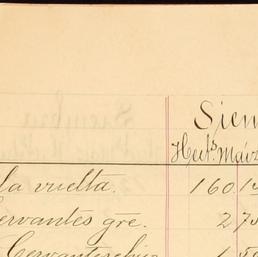 Siem
Hects Maiz
la vuelta. 160 1
ervantes gre. 2 7
Cervantes 1 5